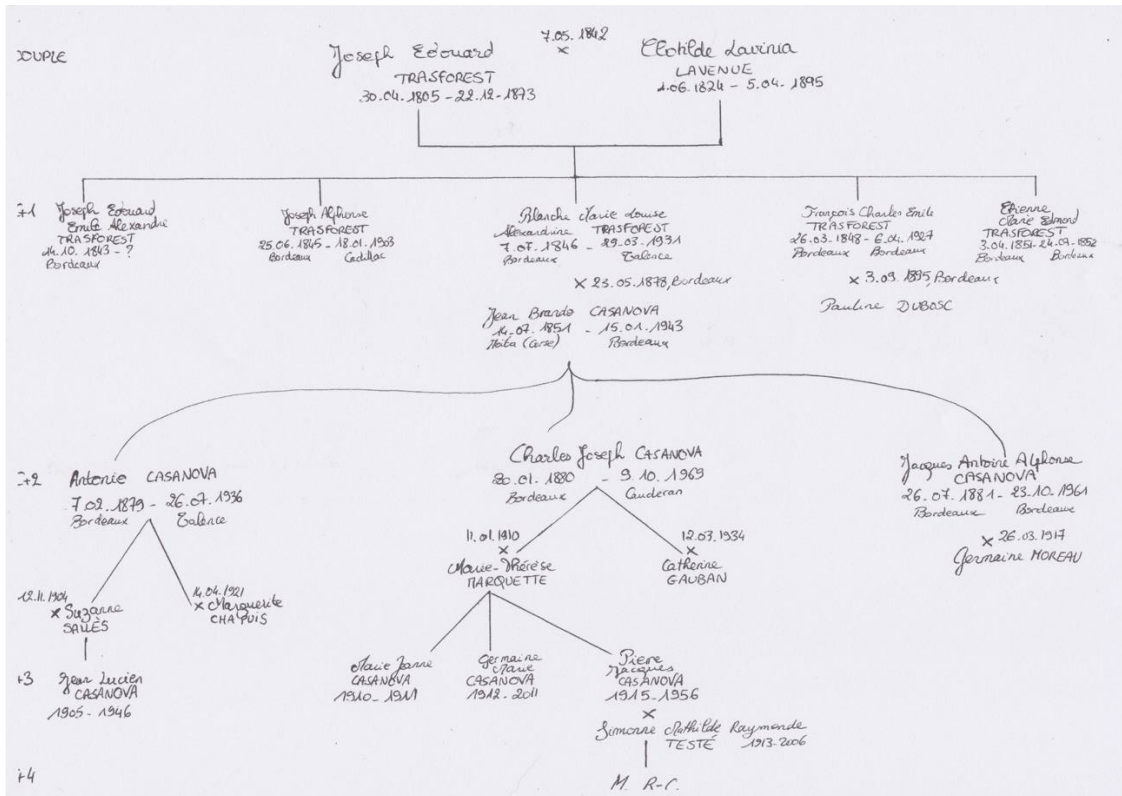 OUPLE
Joseph Edouard
TRASFOREST
30.04.1805 - 22.12-1873
7.05.1842
×
Clotilde Lavinia
LAVENUE
1.06.1824 - 5.04.1895
+1
Joseph Edouard
Emile Alexandre
TRASFOREST
14.10.1843 - ?
Bordeaux
Joseph Alphonse
TRASFOREST
25.06.1845 - 18.01.1903
Bordeaux Cadillac
Blanche Marie Louise
Alexandrine TRASFOREST
7.07.1846 - 29.03-1931
Bordeaux Talence
× 23.05.1878, Bordeaux
Jean Brando CASANOVA
14.07.1851 - 15.01.1943
Moïta (Corse) Bordeaux
François Charles Emile
TRASFOREST
26.03-1848 - 6.04.1927
Bordeaux Bordeaux
× 3.09.1895, Bordeaux
Pauline DUBOSC
Etienne
Marie Edmond
TRASFOREST
3.04.1851-24.07-1852
Bordeaux Bordeaux
+2
Antonie CASANOVA
7.02.1879 - 26.07.1936
Bordeaux Talence
Charles Joseph CASANOVA
20.01.1880 - 9.10.1969
Bordeaux Cauderan
Jacques Antoine Alphonse
CASANOVA
26.07.1881 - 23.10.1961
Bordeaux Bordeaux
× 26.03.1917
Germaine MOREAU
11.01.1910
×
Marie-Thérèse
MARQUETTE
12.03.1934
×
Catherine
GAUBAN
12.11.1904
× Suzanne
SALLÈS
14.04.1921
× Marguerite
CHAPUIS
+3
Jean Lucien
CASANOVA
1905 - 1946
Marie Jeanne
CASANOVA
1910 - 1911
Germaine
Marie
CASANOVA
1912 - 2011
Pierre
Jacques
CASANOVA
1915 - 1956
×
Simonne Mathilde Raymonde
TESTÉ 1913-2006
+4
M. R-C.